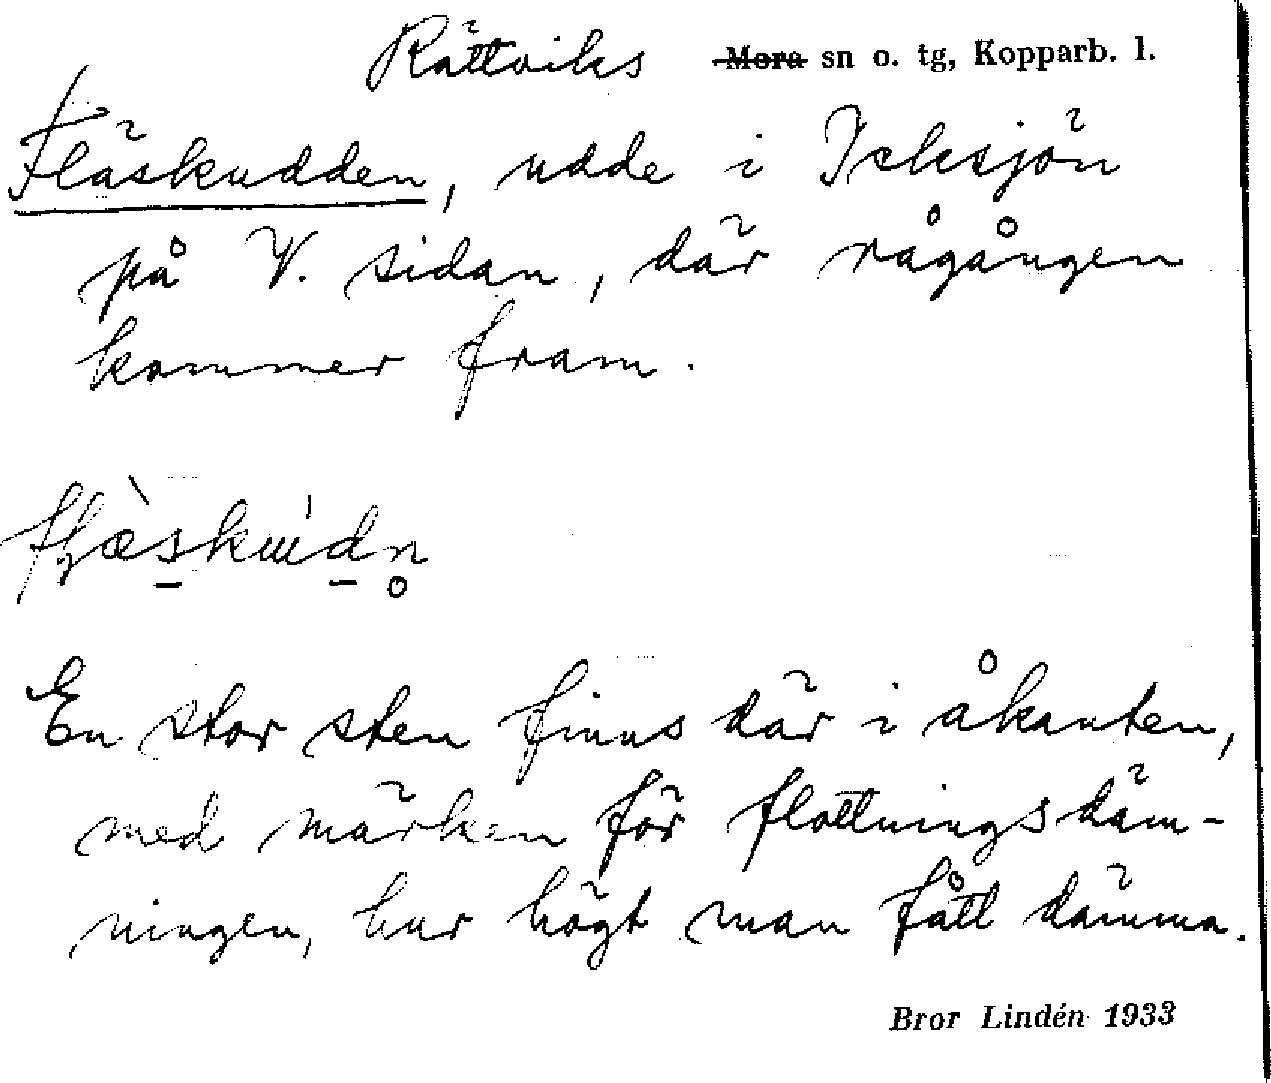 Rättviks ~~Mora~~ sn o. tg, Kopparb. l.
Fläskudden, udde i Icksjön
på V. sidan, där rågången
kommer fram.
En stor sten finns där i åkanten,
med märken för flottningsdäm-
ningen, hur högt man fått dämma.
Bror Lindén 1933